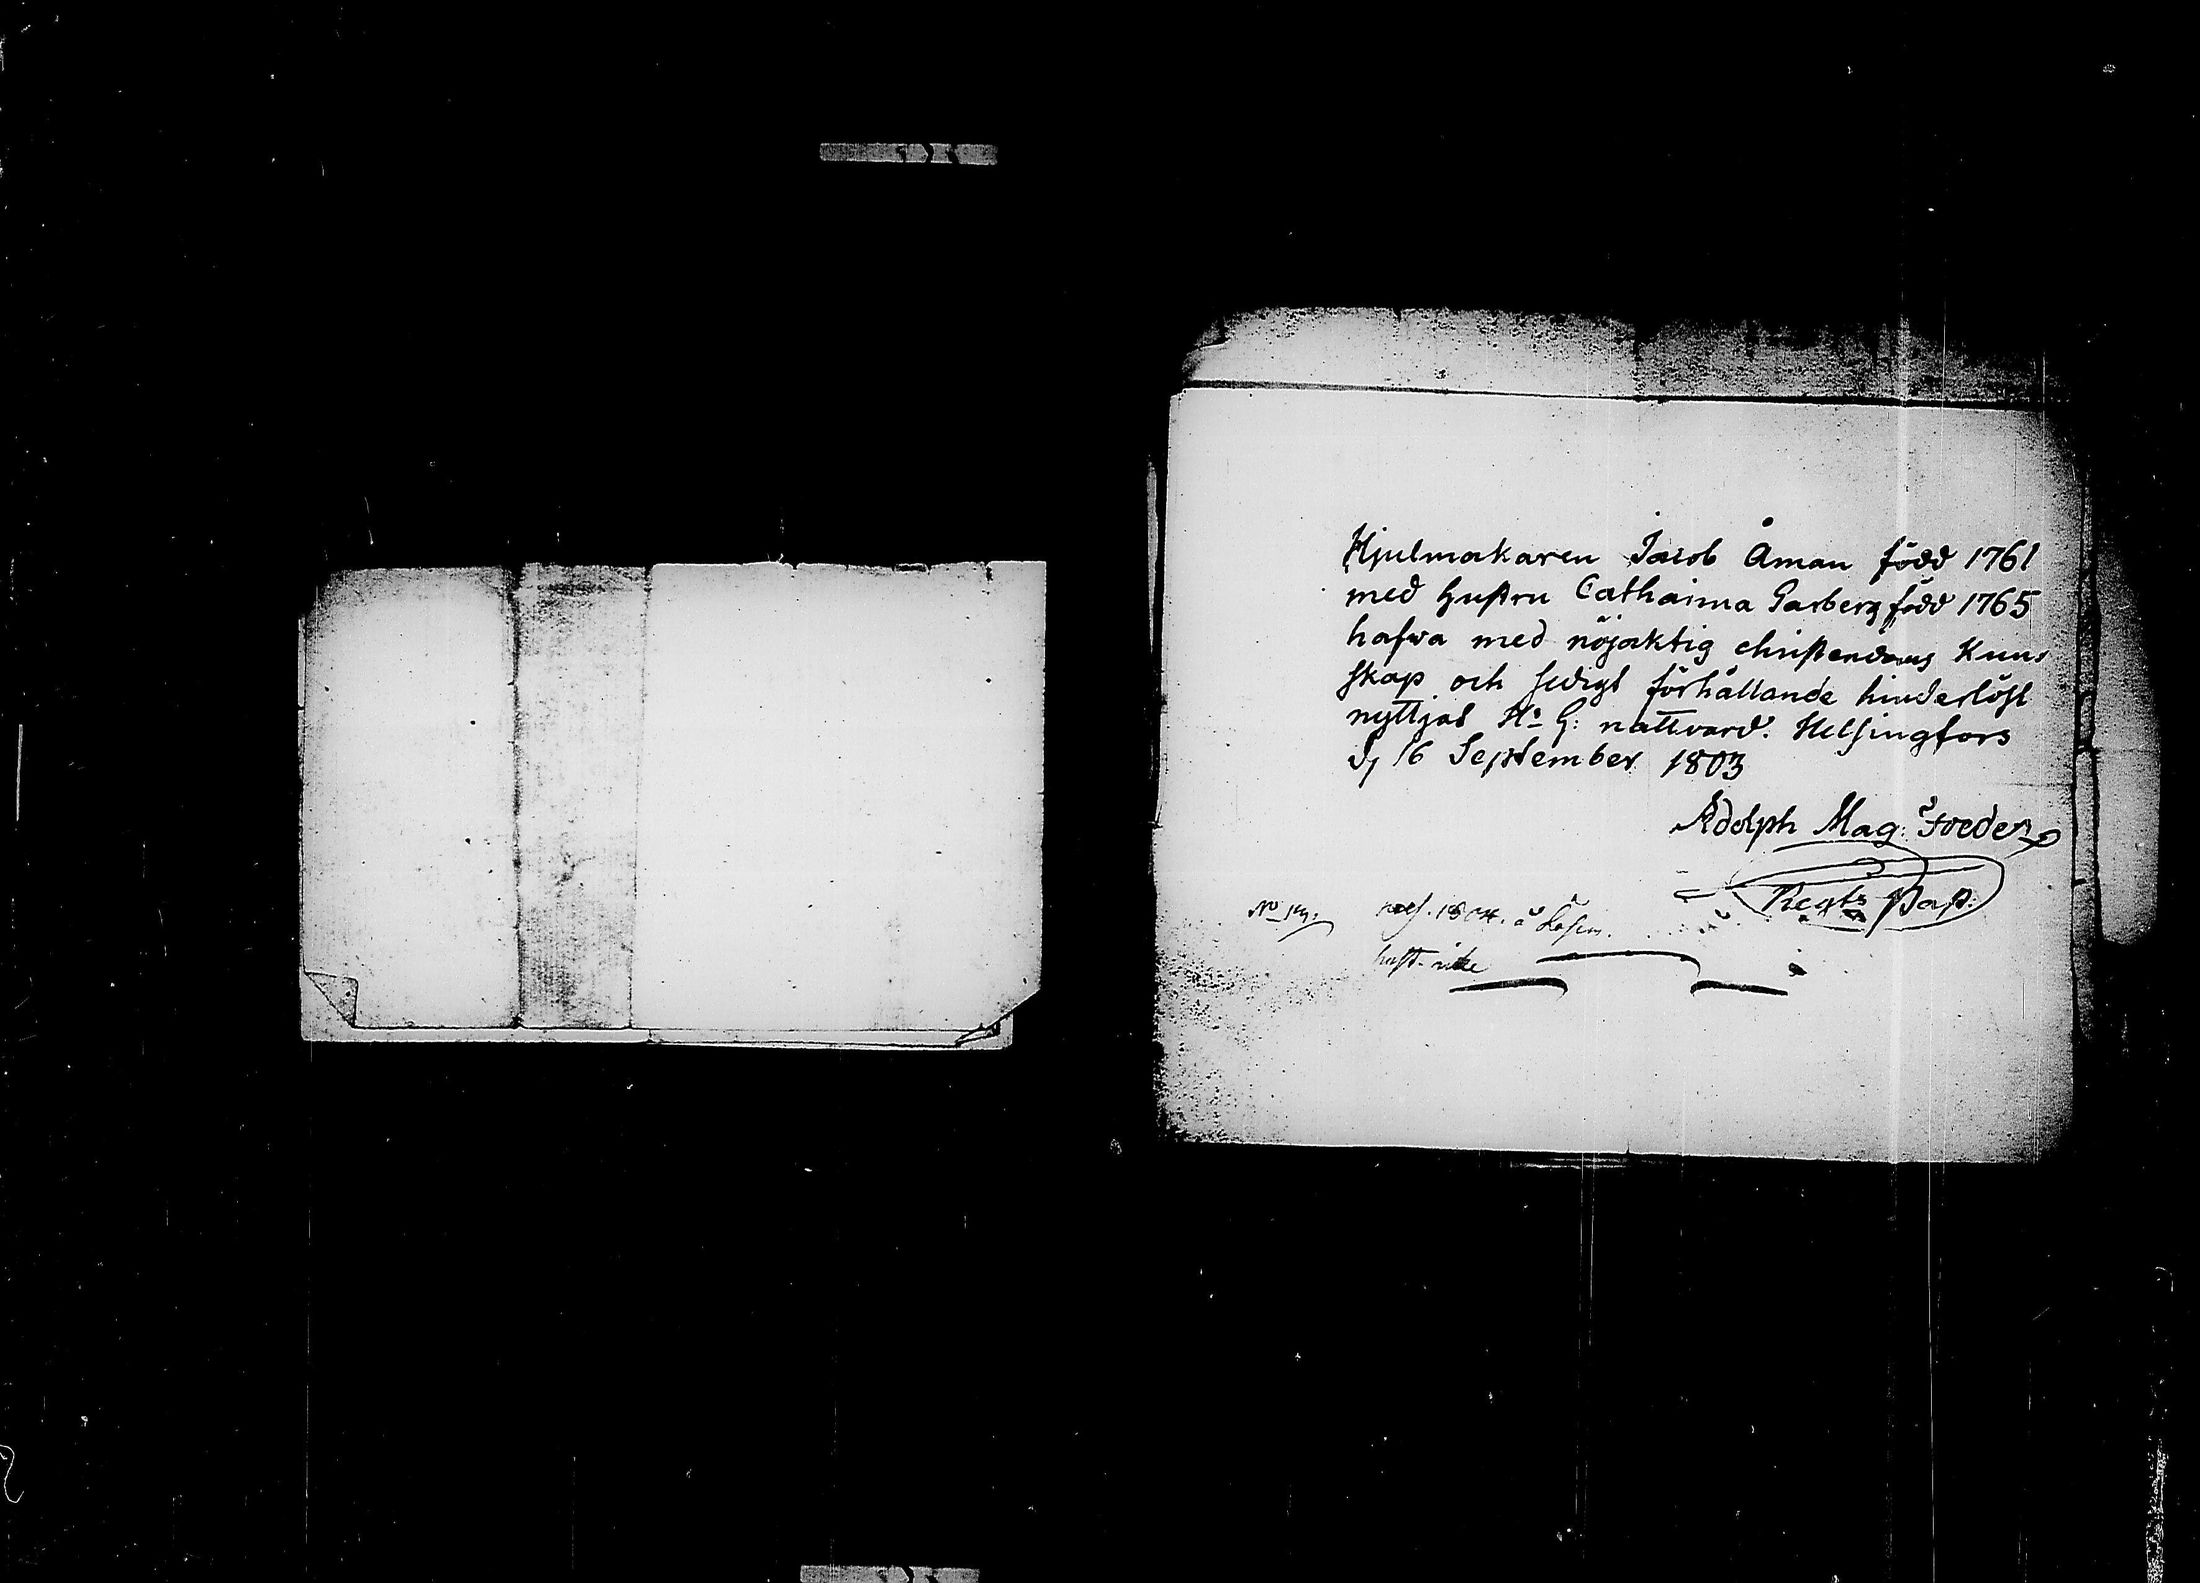 Hjulmakaren Jacob Åman född 1761
med hustru Catharina Garberg född 1765
hafwa med nöjaktig christendoms Kuns
skap och sedigt förhållande hinderlöst
nyttjat Hs. H: nattvard. Helsingfors
d. 16 September 1803
Adolph Mag:
Regts Past:
No 19.
1804. å
hust. icke